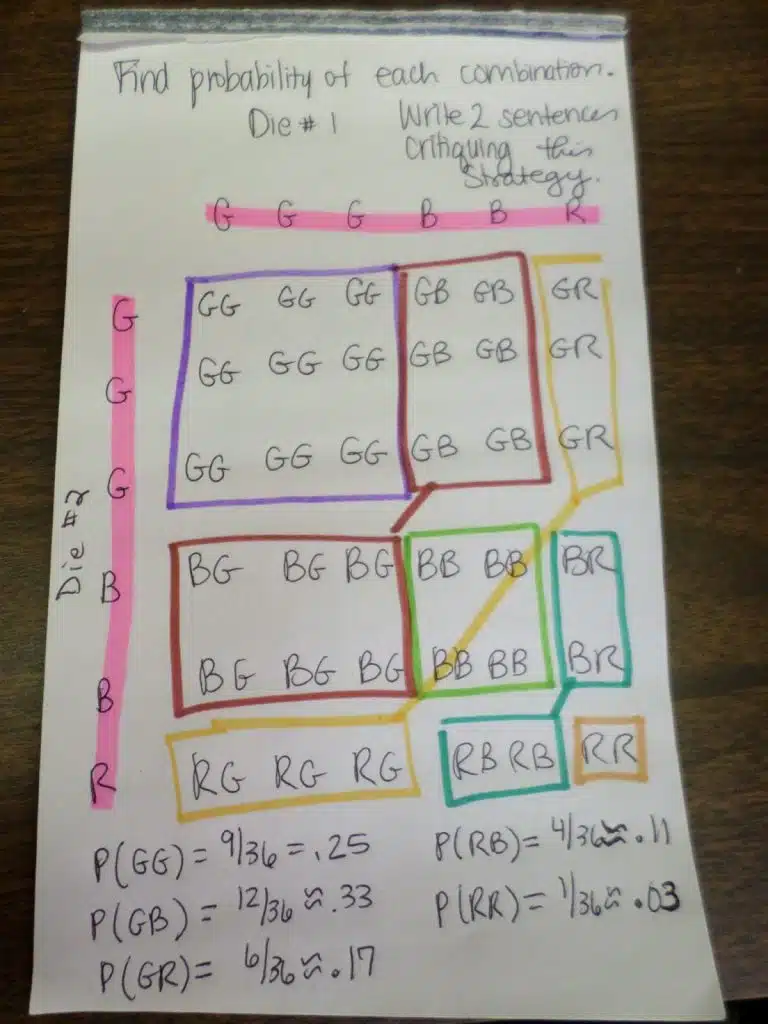 Find probability of each combination.
Die # 1 Write 2 sentences
Critiquing this
Strategy.
G G G B B R
G GG GG GG GB GB GR
G GG GG GG GB GB GR
G GG GG GG GB GB GR
Die #2
B BG BG BG BB BB BR
B BG BG BG BB BB BR
R RG RG RG RB RB RR
P(GG) = 9/36 = .25 P(RB) = 4/36 ≈ .11
P(GB) = 12/36 ≈ .33 P(RR) = 1/36 ≈ .03
P(GR) = 6/36 ≈ .17